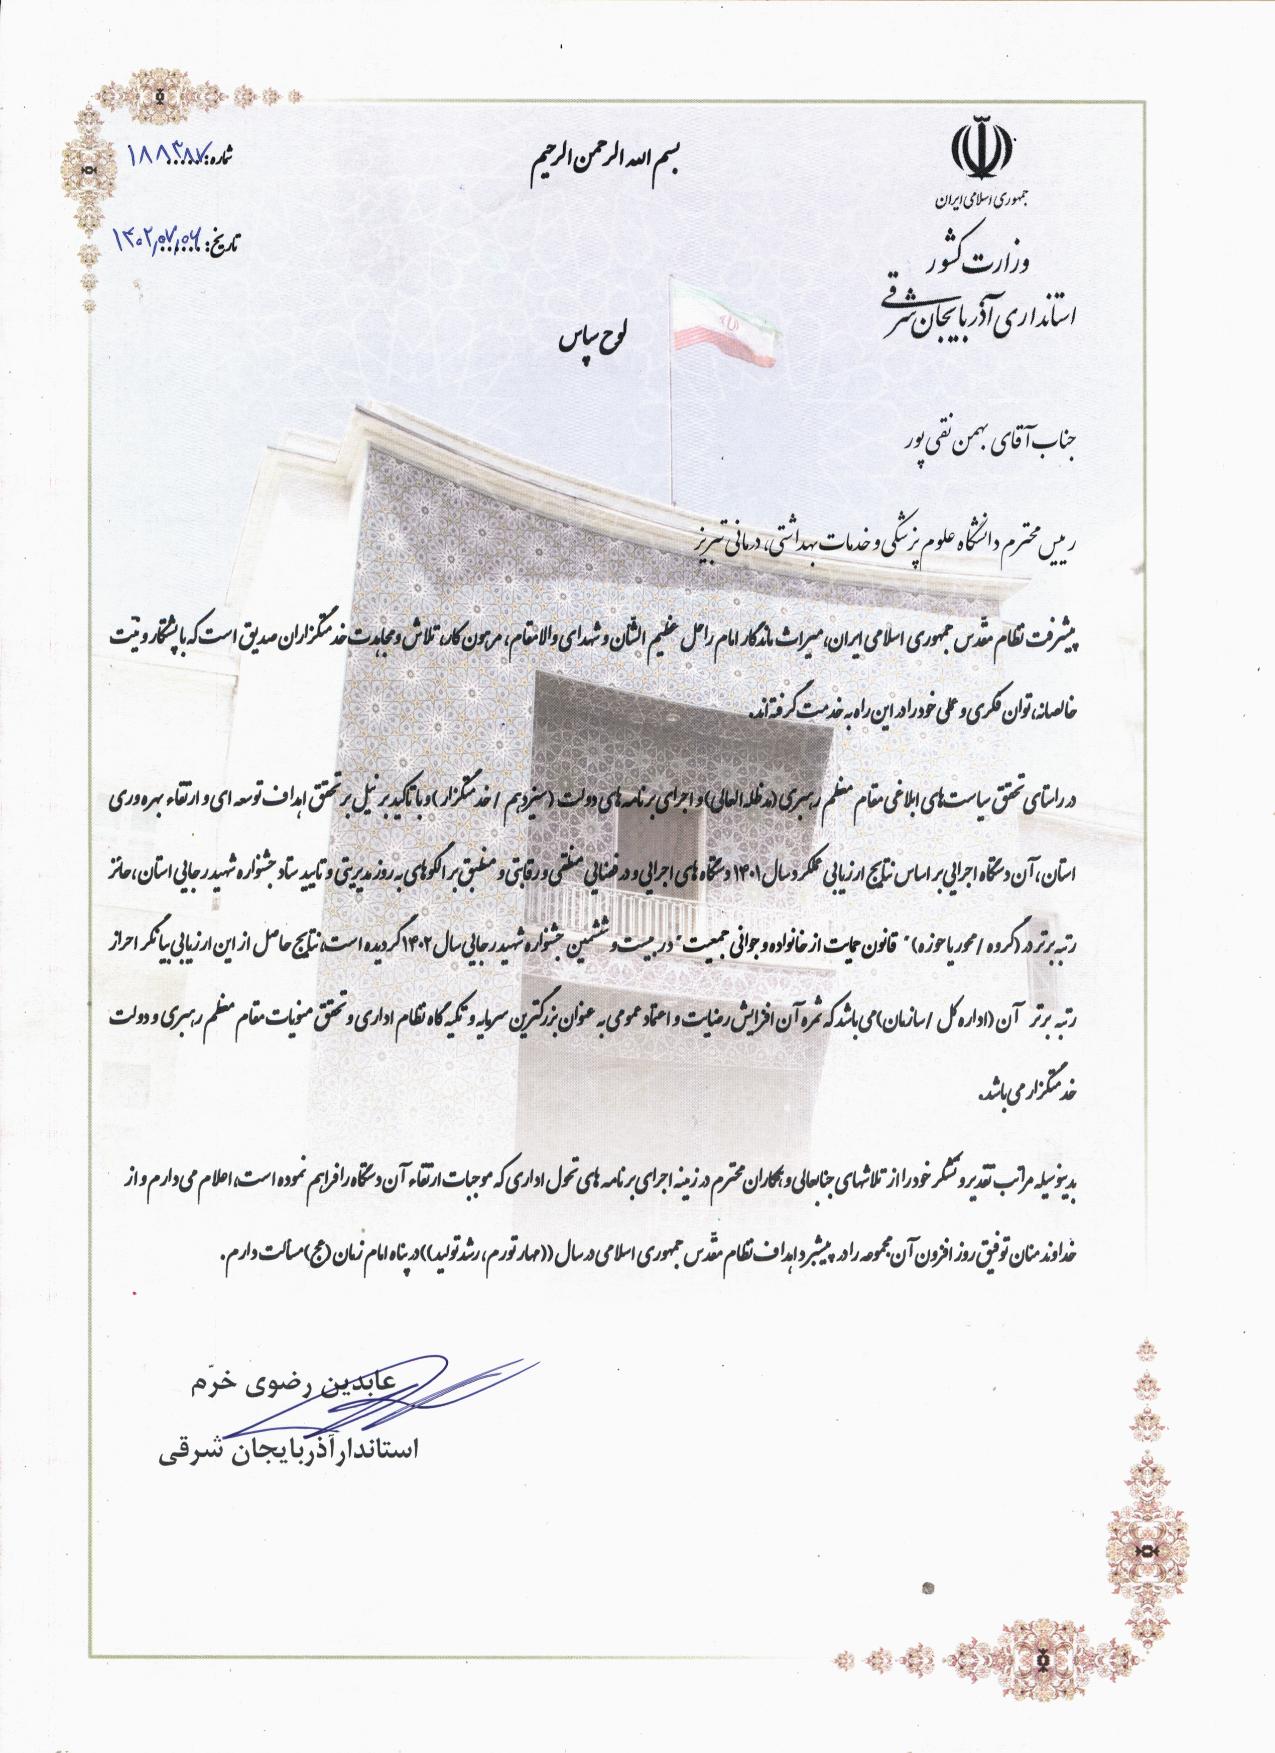 بسم الله الرحمن الرحیم
جمهوری اسلامی ایران
وزارت کشور
استانداری آذربایجان شرقی
شماره: ۱۸۸۳۸۷
تاریخ: ۱۴۰۲,۰۷,۰۶
لوح سپاس
جناب آقای بهمن نقی پور
رییس محترم دانشگاه علوم پزشکی و خدمات بهداشتی، درمانی تبریز
پیشرفت نظام مقدّس جمهوری اسلامی ایران، میراث ماندگار امام راحل عظیم الشّأن و شهدای والامقام، مرهون کار، تلاش و مجاهدت خدمتگزاران صدیق است که با پشتکار و نیّت
خالصانه، توان فکری و عملی خود را در این راه به خدمت گرفته اند.
در راستای تحقق سیاست های ابلاغی مقام معظم رهبری (مدظله العالی) و اجرای برنامه های دولت (سیزدهم / خدمتگزار) و با تاکید بر نیل بر تحقق اهداف توسعه ای و ارتقاء بهره وری
استان، آن دستگاه اجرایی بر اساس نتایج ارزیابی عملکرد سال ۱۴۰۱ دستگاه های اجرایی و در فضایی منطقی و رقابتی و منطبق بر الگوهای به روز مدیریتی و تایید ستاد جشنواره شهید رجایی استان، حائز
رتبه برتر در (گروه / محور یا حوزه) " قانون حمایت از خانواده و جوانی جمعیت" در بیست و ششمین جشنواره شهید رجایی سال ۱۴۰۲ گردیده است، نتایج حاصل از این ارزیابی بیانگر احراز
رتبه برتر آن (اداره کل / سازمان) می باشد که ثمره آن افزایش رضایت و اعتماد عمومی به عنوان بزرگترین سرمایه و تکیه گاه نظام اداری و تحقق منویات مقام معظم رهبری و دولت
خدمتگزار می باشد.
بدینوسیله مراتب تقدیر و تشکر خود را از تلاشهای جنابعالی و همکاران محترم در زمینه اجرای برنامه های تحول اداری که موجبات ارتقاء آن دستگاه را فراهم نموده است، اعلام می دارم و از
خداوند منان توفیق روز افزون آن مجموعه را در پیشبرد اهداف نظام مقدّس جمهوری اسلامی در سال ((مهار تورم، رشد تولید)) در پناه امام زمان (عج) مسألت دارم.
عابدین رضوی خرّم
استاندار آذربایجان شرقی